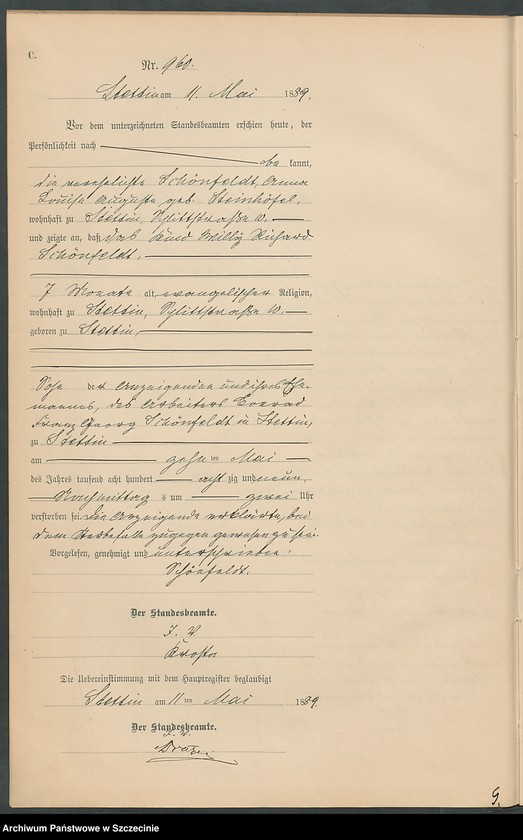 C.
Nr. 960.
Stettin am 11. Mai 1889.
Vor dem unterzeichneten Standesbeamten erschien heute, der
Persönlichkeit nach
kannt,
die verehelichte Schönfeldt, Anna
Louise Auguste geb. Steinhöfel,
wohnhaft zu Stettin, 10.
und zeigte an, daß das Kind Willy Richard
Schönfeldt,
7 Monate alt, evangelischer Religion,
wohnhaft zu Stettin, 10.
geboren zu Stettin,
Sohn der Anzeigenden und ihres Ehe-
mannes, des Arbeiters Conrad
Franz Georg Schönfeldt in Stettin,
zu Stettin
am zehnten Mai
des Jahres tausend acht hundert achtzig und neun,
Nachmittags um zwei Uhr
verstorben sei. Die Anzeigende erklärte, bei
dem Sterbefalle zugegen gewesen zu sein.
Vorgelesen, genehmigt und unterschrieben:
Schönfeldt.
Der Standesbeamte.
J. V.
Die Uebereinstimmung mit dem Hauptregister beglaubigt
Stettin am 11ten Mai 1889.
Der Standesbeamte.
J. V.
9.
Archiwum Państwowe w Szczecinie